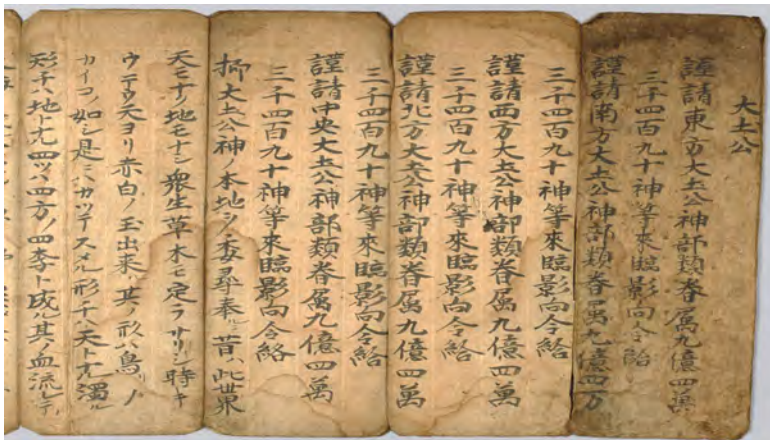 大土公
謹請東方大土公神部類眷属九億四萬
三千四百九十神等來臨影向令給
謹請南方大土公神部類眷属九億四万
三千四百九十神等來臨影向令給
謹請西方大土公神部類眷属九億四萬
三千四百九十神等來臨影向令給
謹請北方大土公神部類眷属九億四萬
三千四百九十神等來臨影向令給
謹請中央大土公神部類眷属九億四萬
三千四百九十神等來臨影向令給
抑大土公神ノ本地ヲ委尋奉ルニ昔ハ此世界
天モナク地モナシ衆生草木モ定ラサリシ時キ
天ヨリ赤白ノ玉出来ル其ノ形ハ鳥ノ
カイコノ如シ是ニ形チハ天ト濁ル
形チハ地ト四ツハ四方ノ四季ト成ル其ノ血流レテ